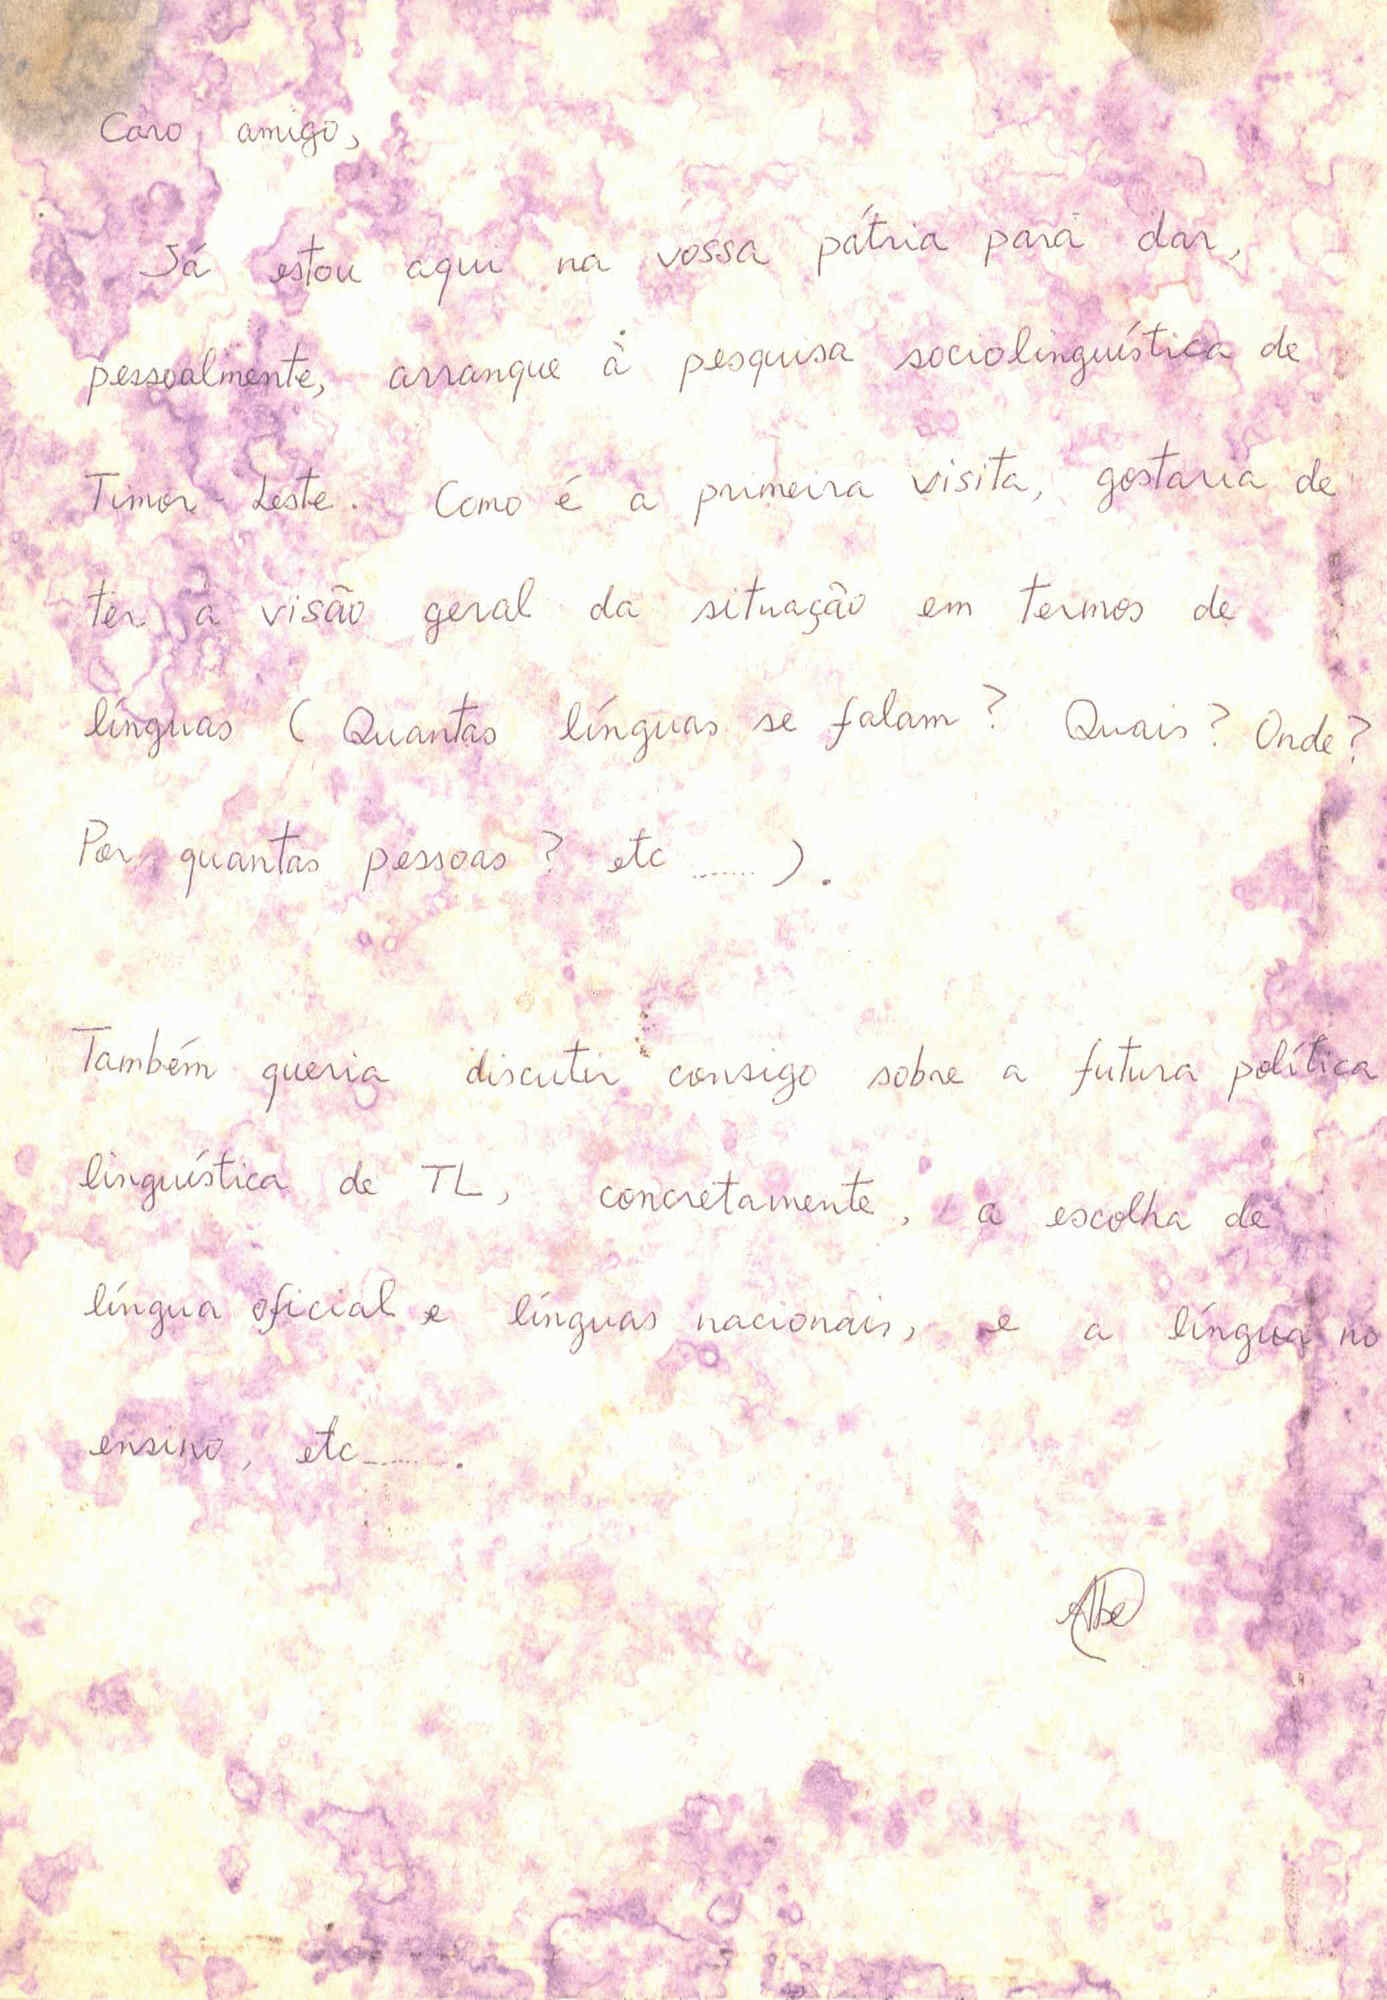 Caro amigo,
Já estou aqui na vossa pátria para dar,
pessoalmente, arranque à pesquisa sociolinguística de
Timor Leste. Como é a primeira visita, gostaria de
ter a visão geral da situação em termos de
línguas (Quantas línguas se falam? Quais? Onde?
Por quantas pessoas? etc ......).
Também queria discutir consigo sobre a futura política
linguística de TL, concretamente, a escolha de
língua oficial e línguas nacionais, e a língua no
ensino, etc...... .